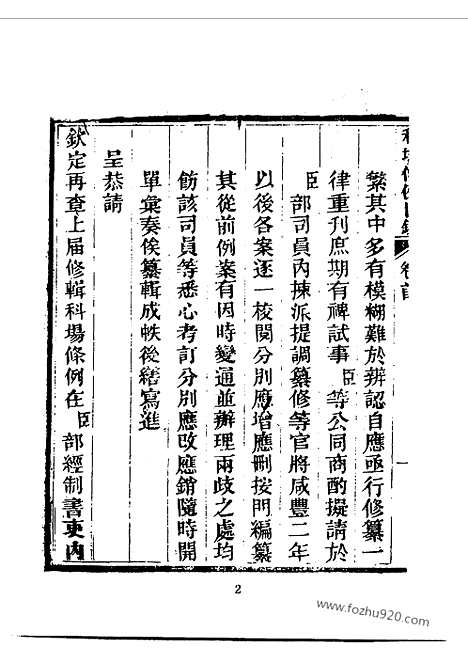 繁其中多有模糊難於辨認自應亟行修纂一
律重刊庶期有裨試事臣等公同商酌擬請於
臣部司員內揀派提調纂修等官將咸豐二年
以後各案逐一檢閱分別應增應刪按門編纂
其從前例案有因時變通並辦理兩歧之處均
飭該司員等悉心考訂分別應改應銷隨時開
單彙奏俟纂輯成帙後繕寫進
呈恭請
欽定再查上屆修輯科場條例在臣部經制書吏內
2
www.fozhu920.com